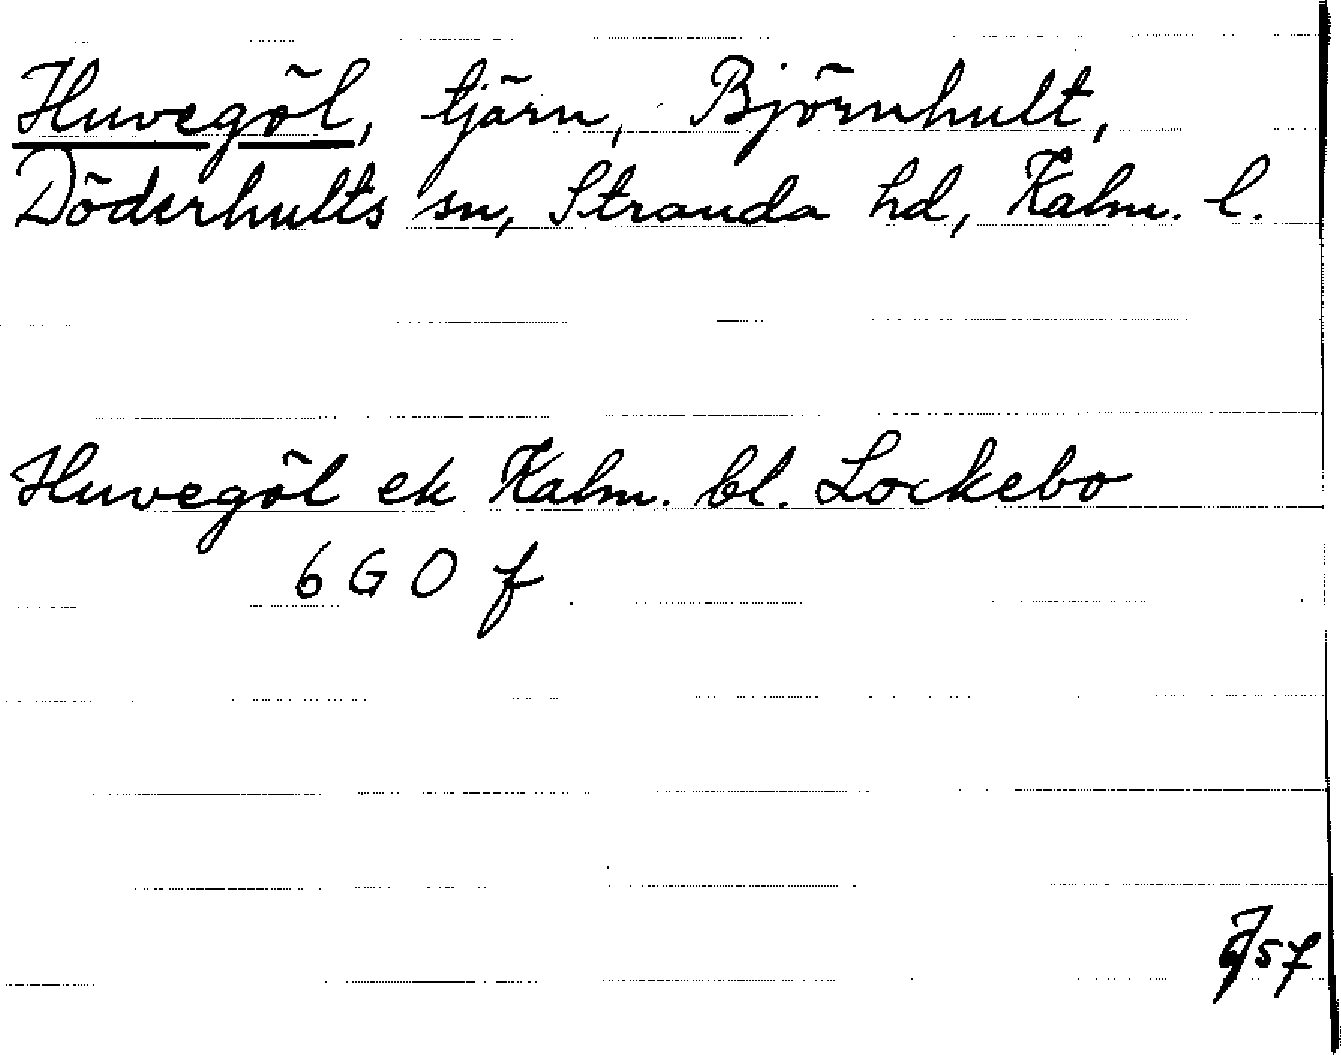 Huvegöl, tjärn, Björnhult,
Döderhults sn, Stranda hd, Kalm. l.
Huvegöl ek Kalm. bl. Lockebo
6 G 0 f
57